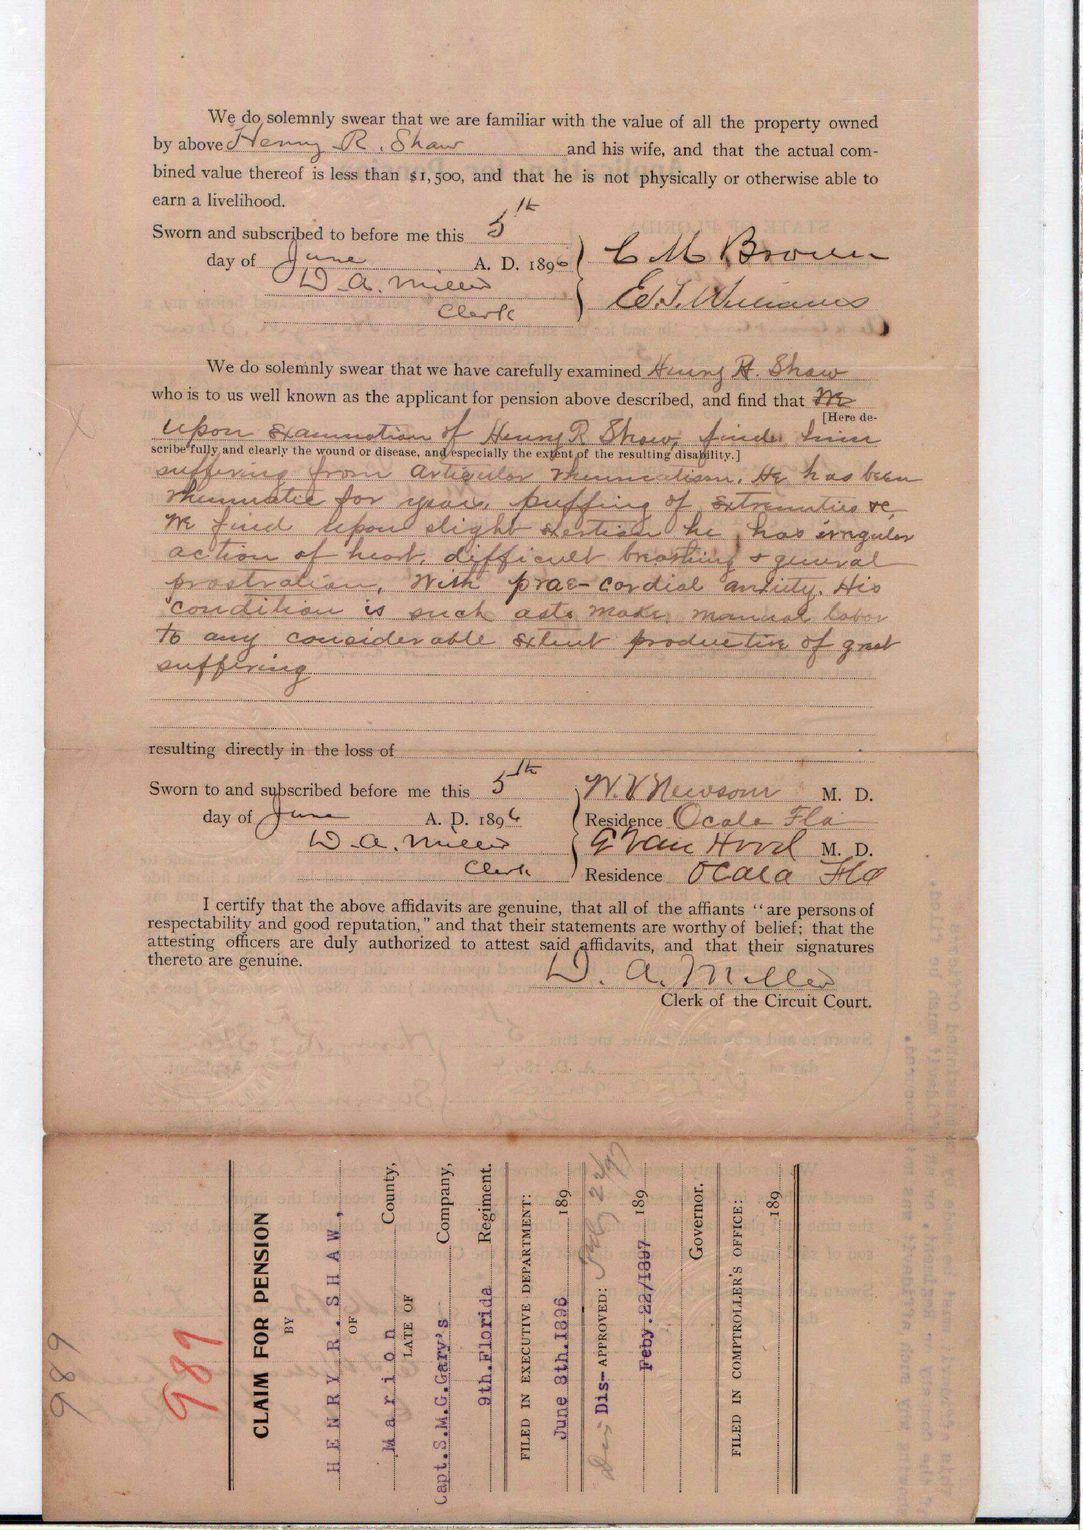 We do solemnly swear that we are familiar with the value of all the property owned
by above Henry R. Shaw and his wife, and that the actual com-
bined value thereof is less than $1,500, and that he is not physically or otherwise able to
earn a livelihood.
Sworn and subscribed to before me this 5th
day of June A. D. 1896
D. A. Miller
Clerk
C M Brown
E. T. Williams
We do solemnly swear that we have carefully examined Henry R. Shaw
who is to us well known as the applicant for pension above described, and find that We
[Here de-
upon examination of Henry R Shaw, find him
scribe fully and clearly the wound or disease, and especially the extent of the resulting disability.]
suffering from articular rheumatism. He has been
rheumatic for years, puffing of extremities &c,
We find upon slight exertion he has irregular
action of heart, difficult breathing & general
prostration, With prae-cordial anxiety. His
condition is such as to make manual labor
to any considerable extent productive of great
suffering
resulting directly in the loss of
Sworn to and subscribed before me this 5th
day of June A. D. 1896
D. A. Miller
Clerk
W. V Newsom M. D.
Residence Ocala Fla
E Van Hood M. D.
Residence Ocala Fla
I certify that the above affidavits are genuine, that all of the affiants "are persons of
respectability and good reputation," and that their statements are worthy of belief; that the
attesting officers are duly authorized to attest said affidavits, and that their signatures
thereto are genuine.
D. A. Miller
Clerk of the Circuit Court.
989
989
CLAIM FOR PENSION
BY
HENRY R. SHAW,
OF
Marion County,
LATE OF
Capt.S.M.G.Gary's Company,
9th.Florida Regiment.
FILED IN EXECUTIVE DEPARTMENT:
June 8th.1896 189
Dis- APPROVED: Feby 22/97
Feby.22/1897 189
Governor.
FILED IN COMPTROLLER'S OFFICE:
189